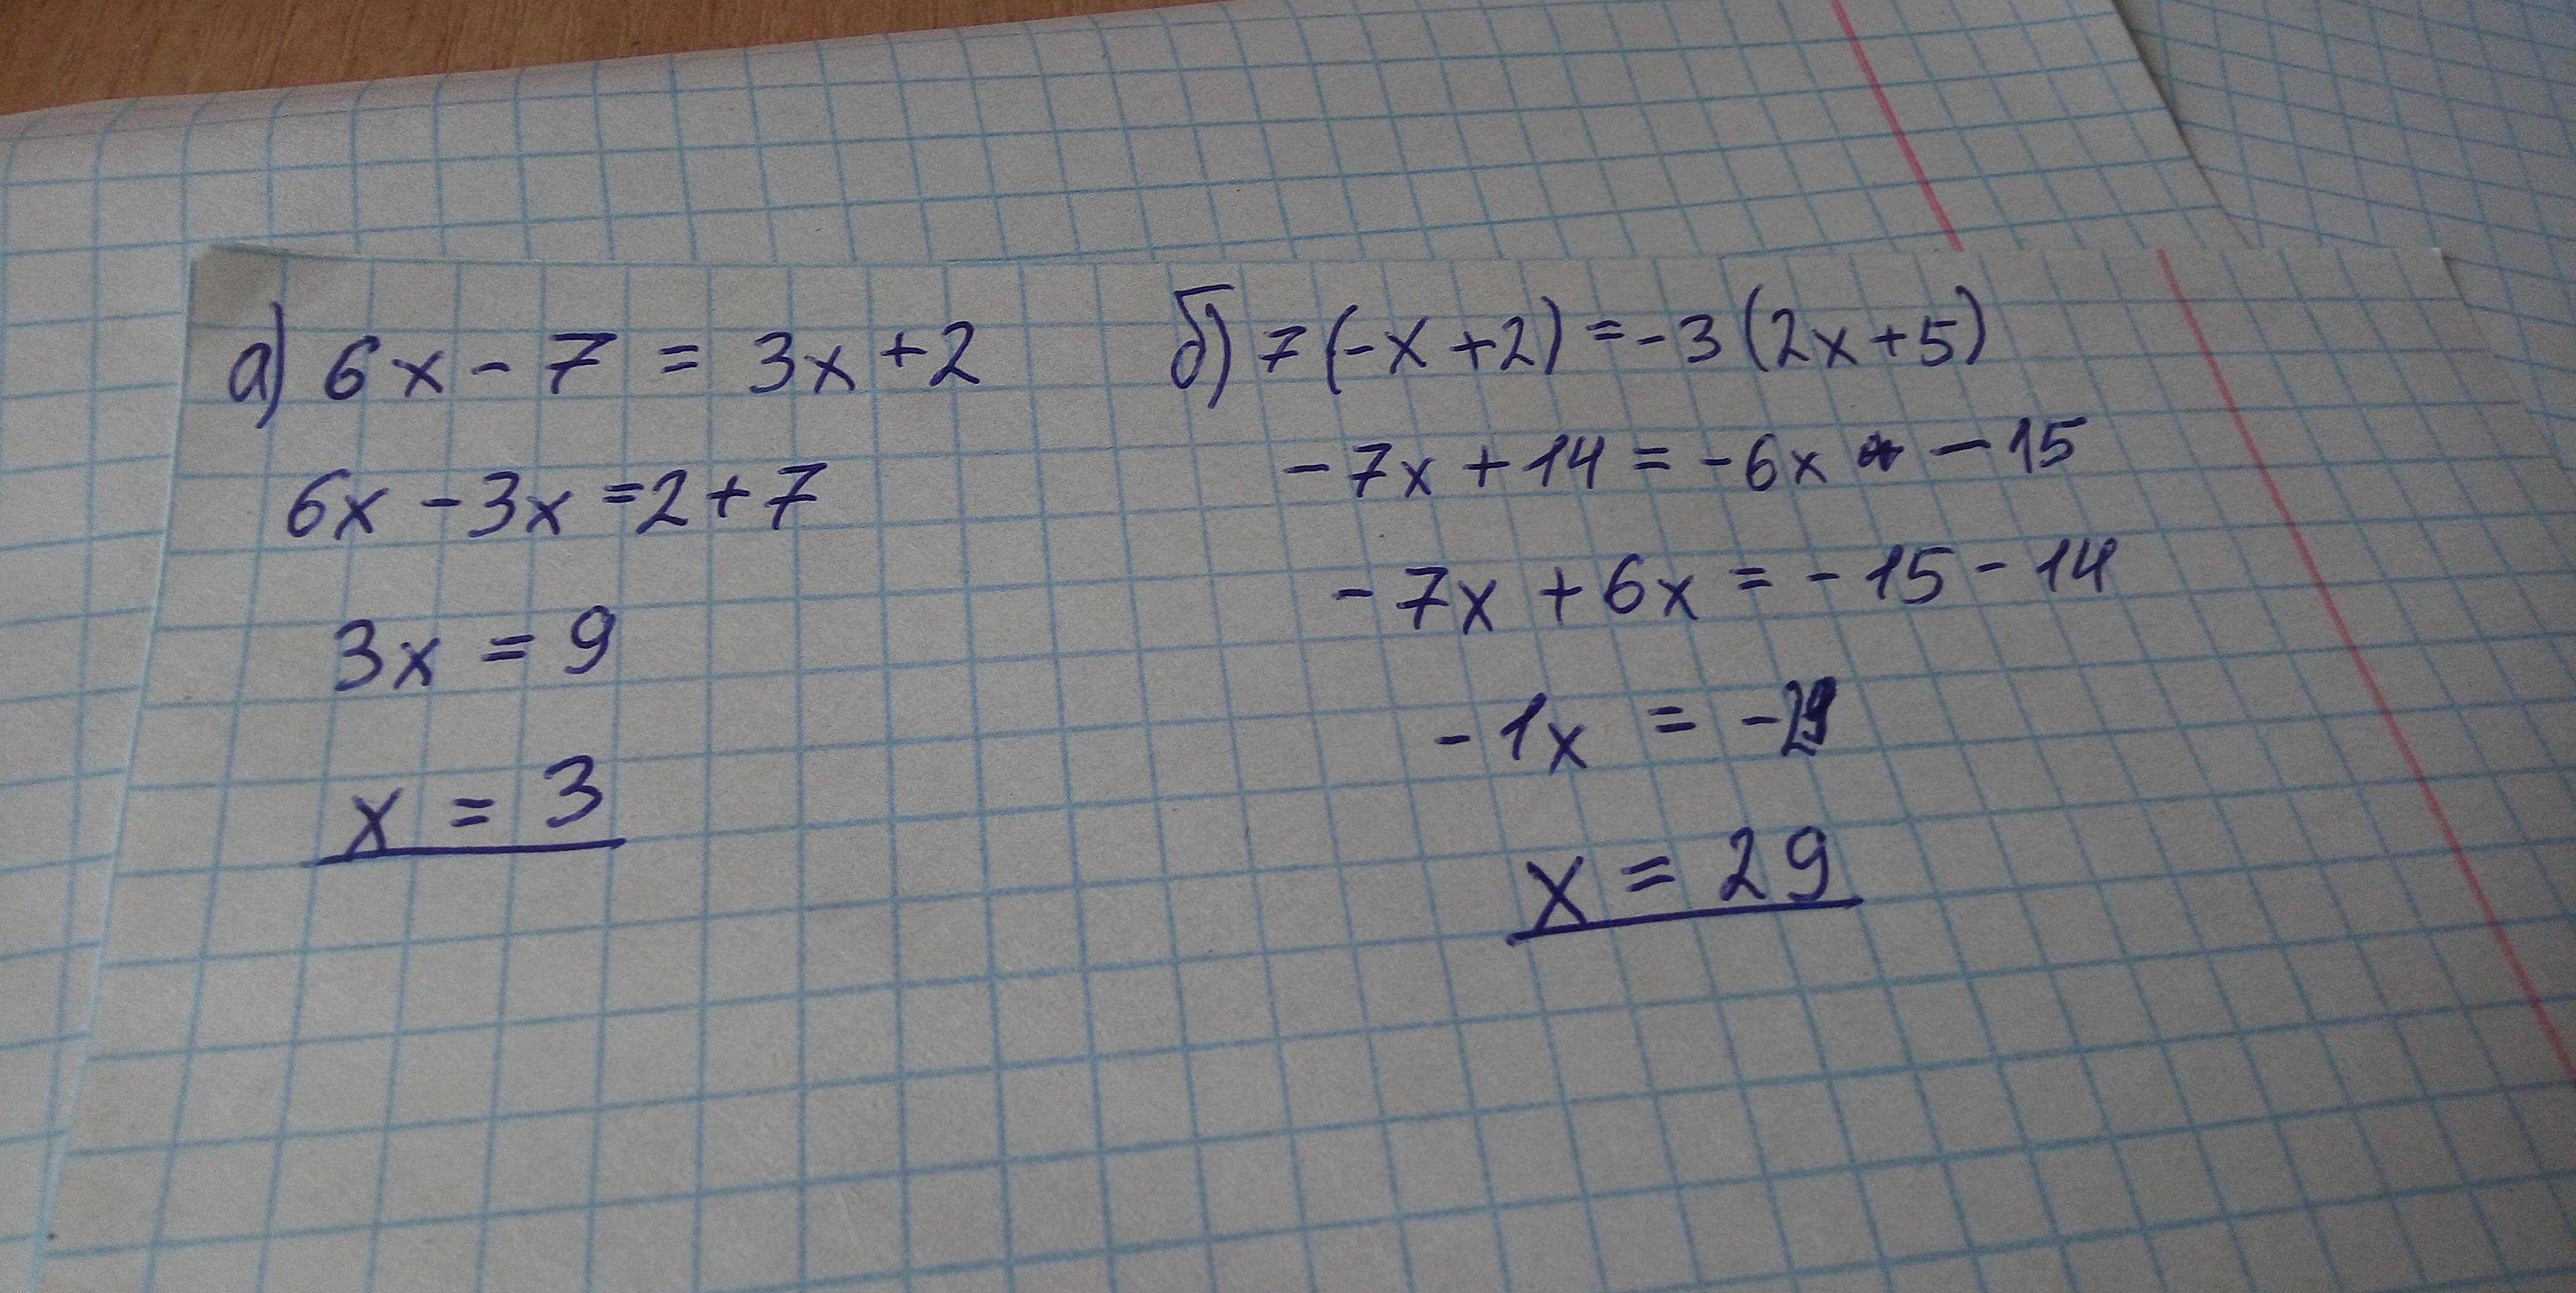 а) 6x - 7 = 3x + 2
6x - 3x = 2 + 7
3x = 9
x = 3
б) 7(-x + 2) = -3(2x + 5)
-7x + 14 = -6x - 15
-7x + 6x = -15 - 14
-1x = -29
x = 29